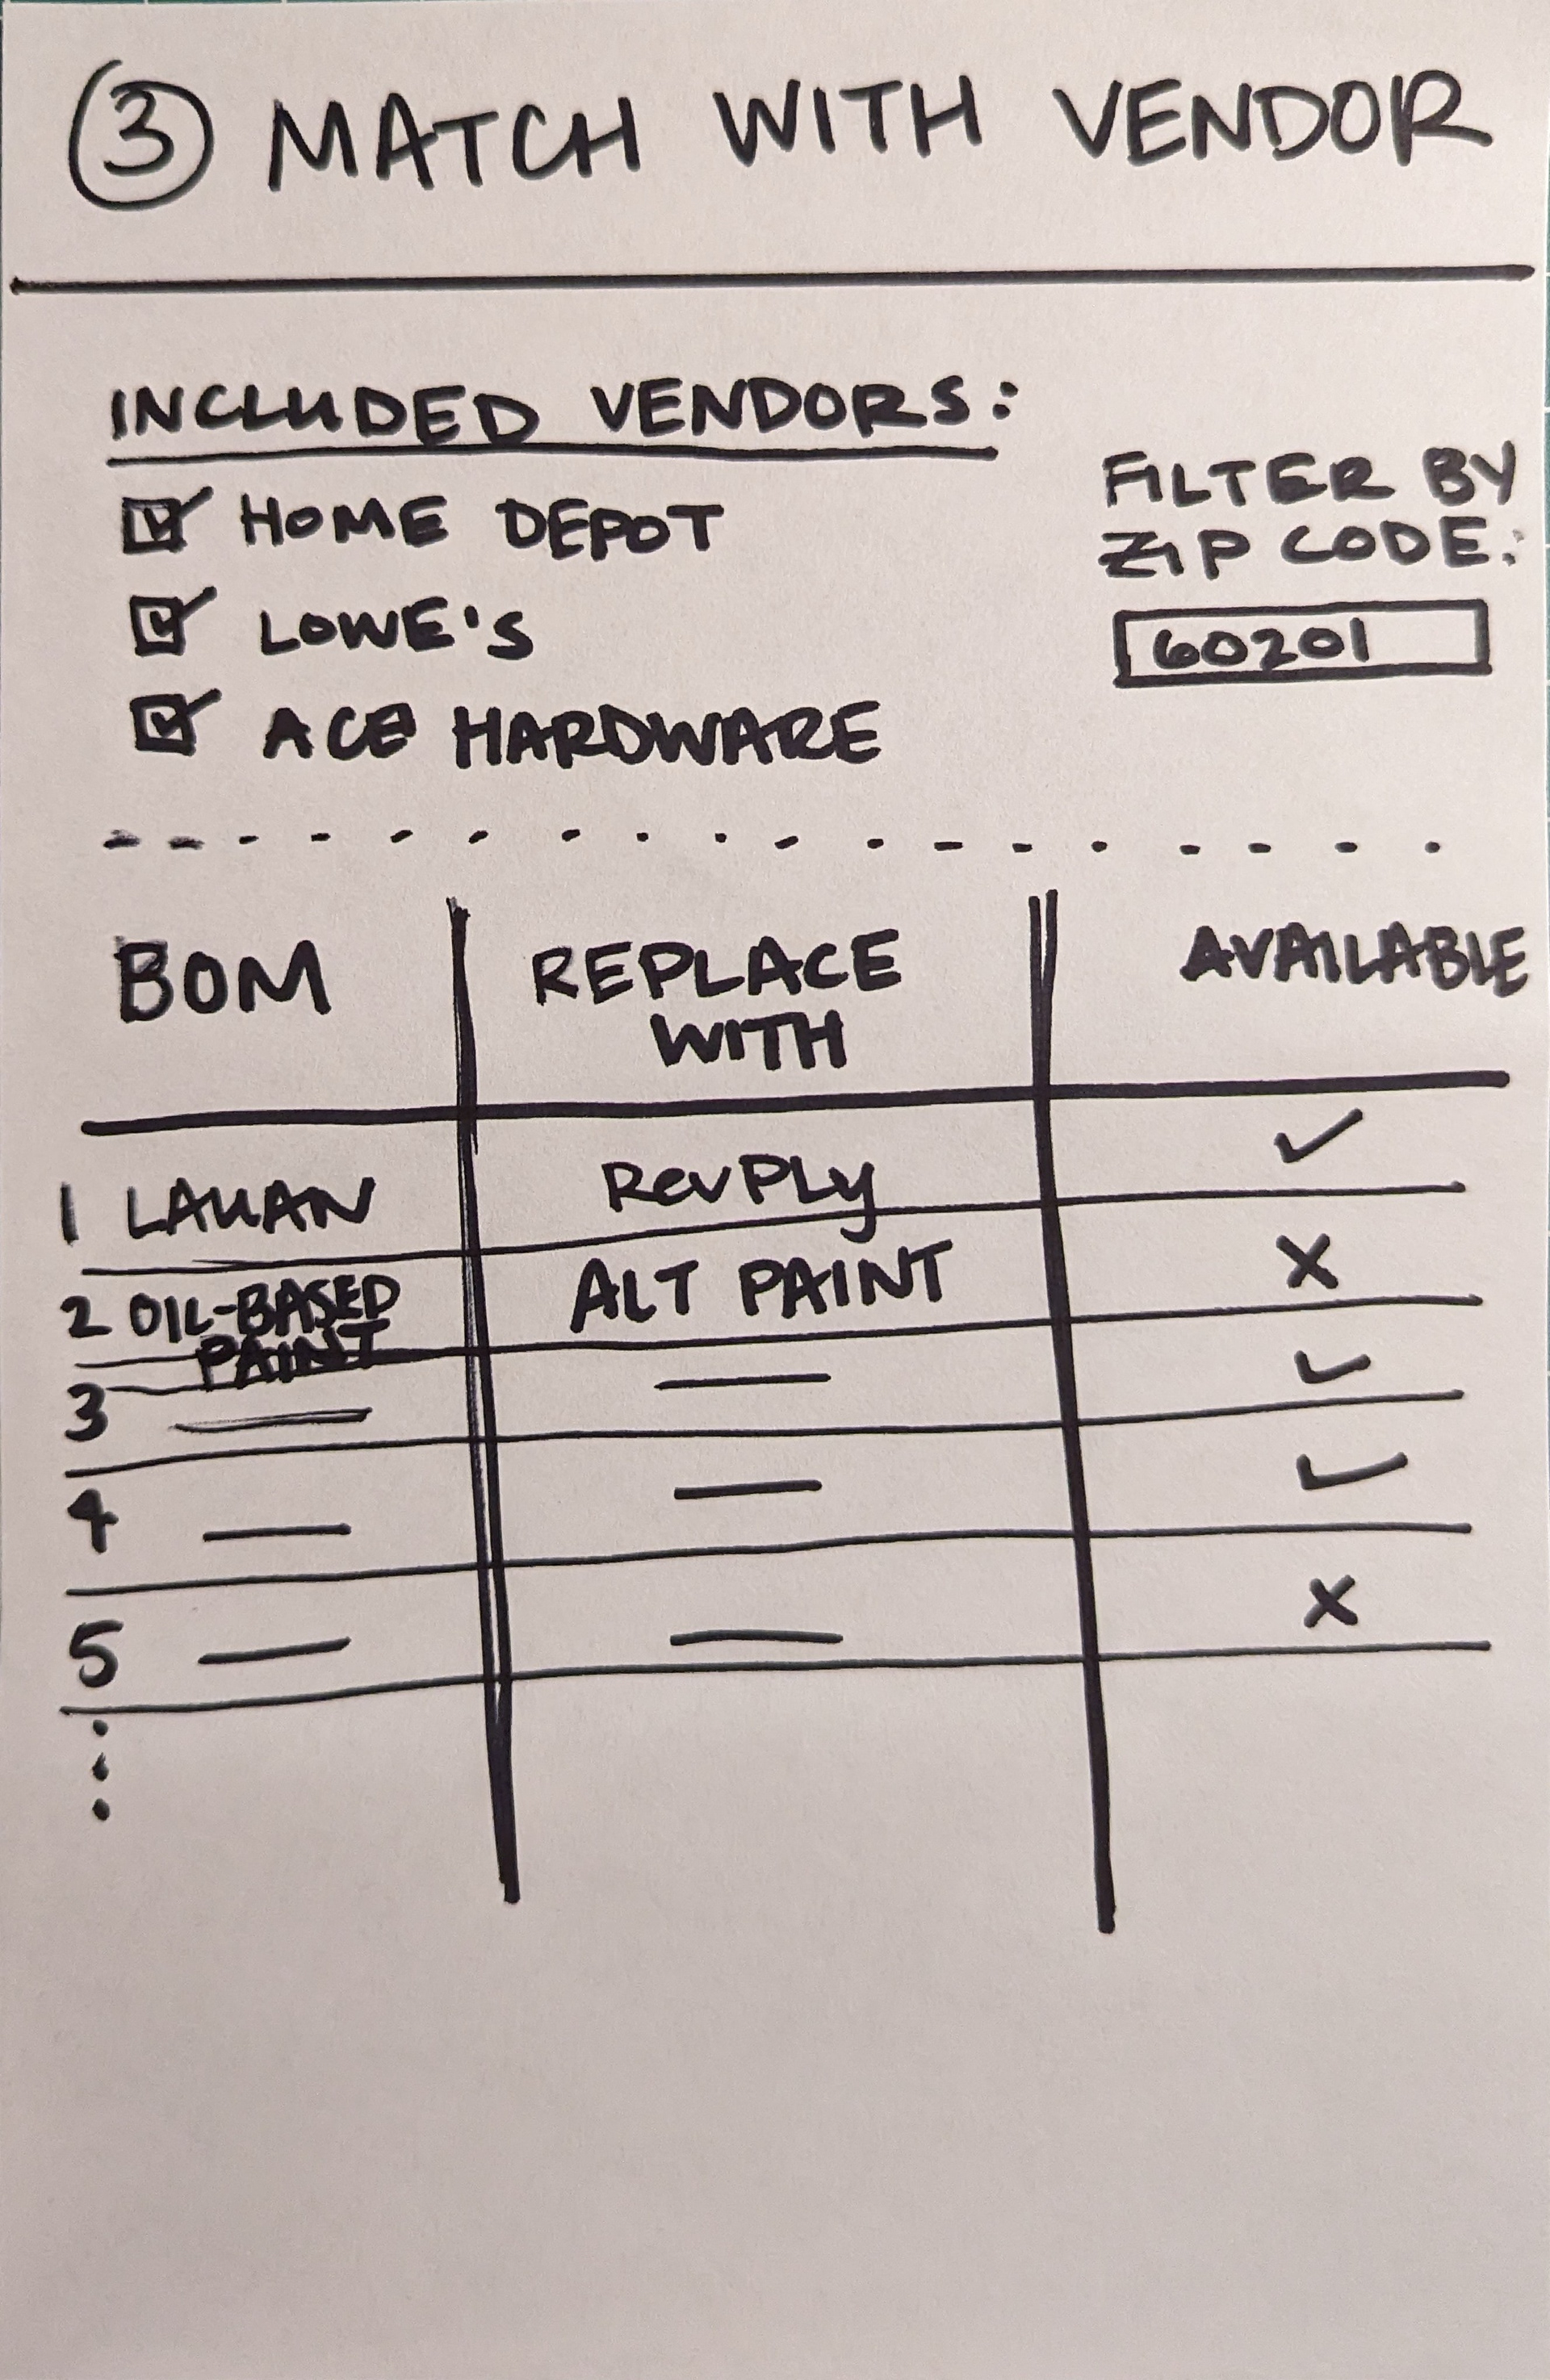 3 MATCH WITH VENDOR
INCLUDED VENDORS:
HOME DEPOT
LOWE'S
ACE HARDWARE
FILTER BY
ZIP CODE:
60201
BOM
REPLACE
WITH
AVAILABLE
1 LAUAN RevPLy ✓
2 OIL-BASED
PAINT
ALT PAINT X
3 — — ✓
4 — — ✓
5 — — X